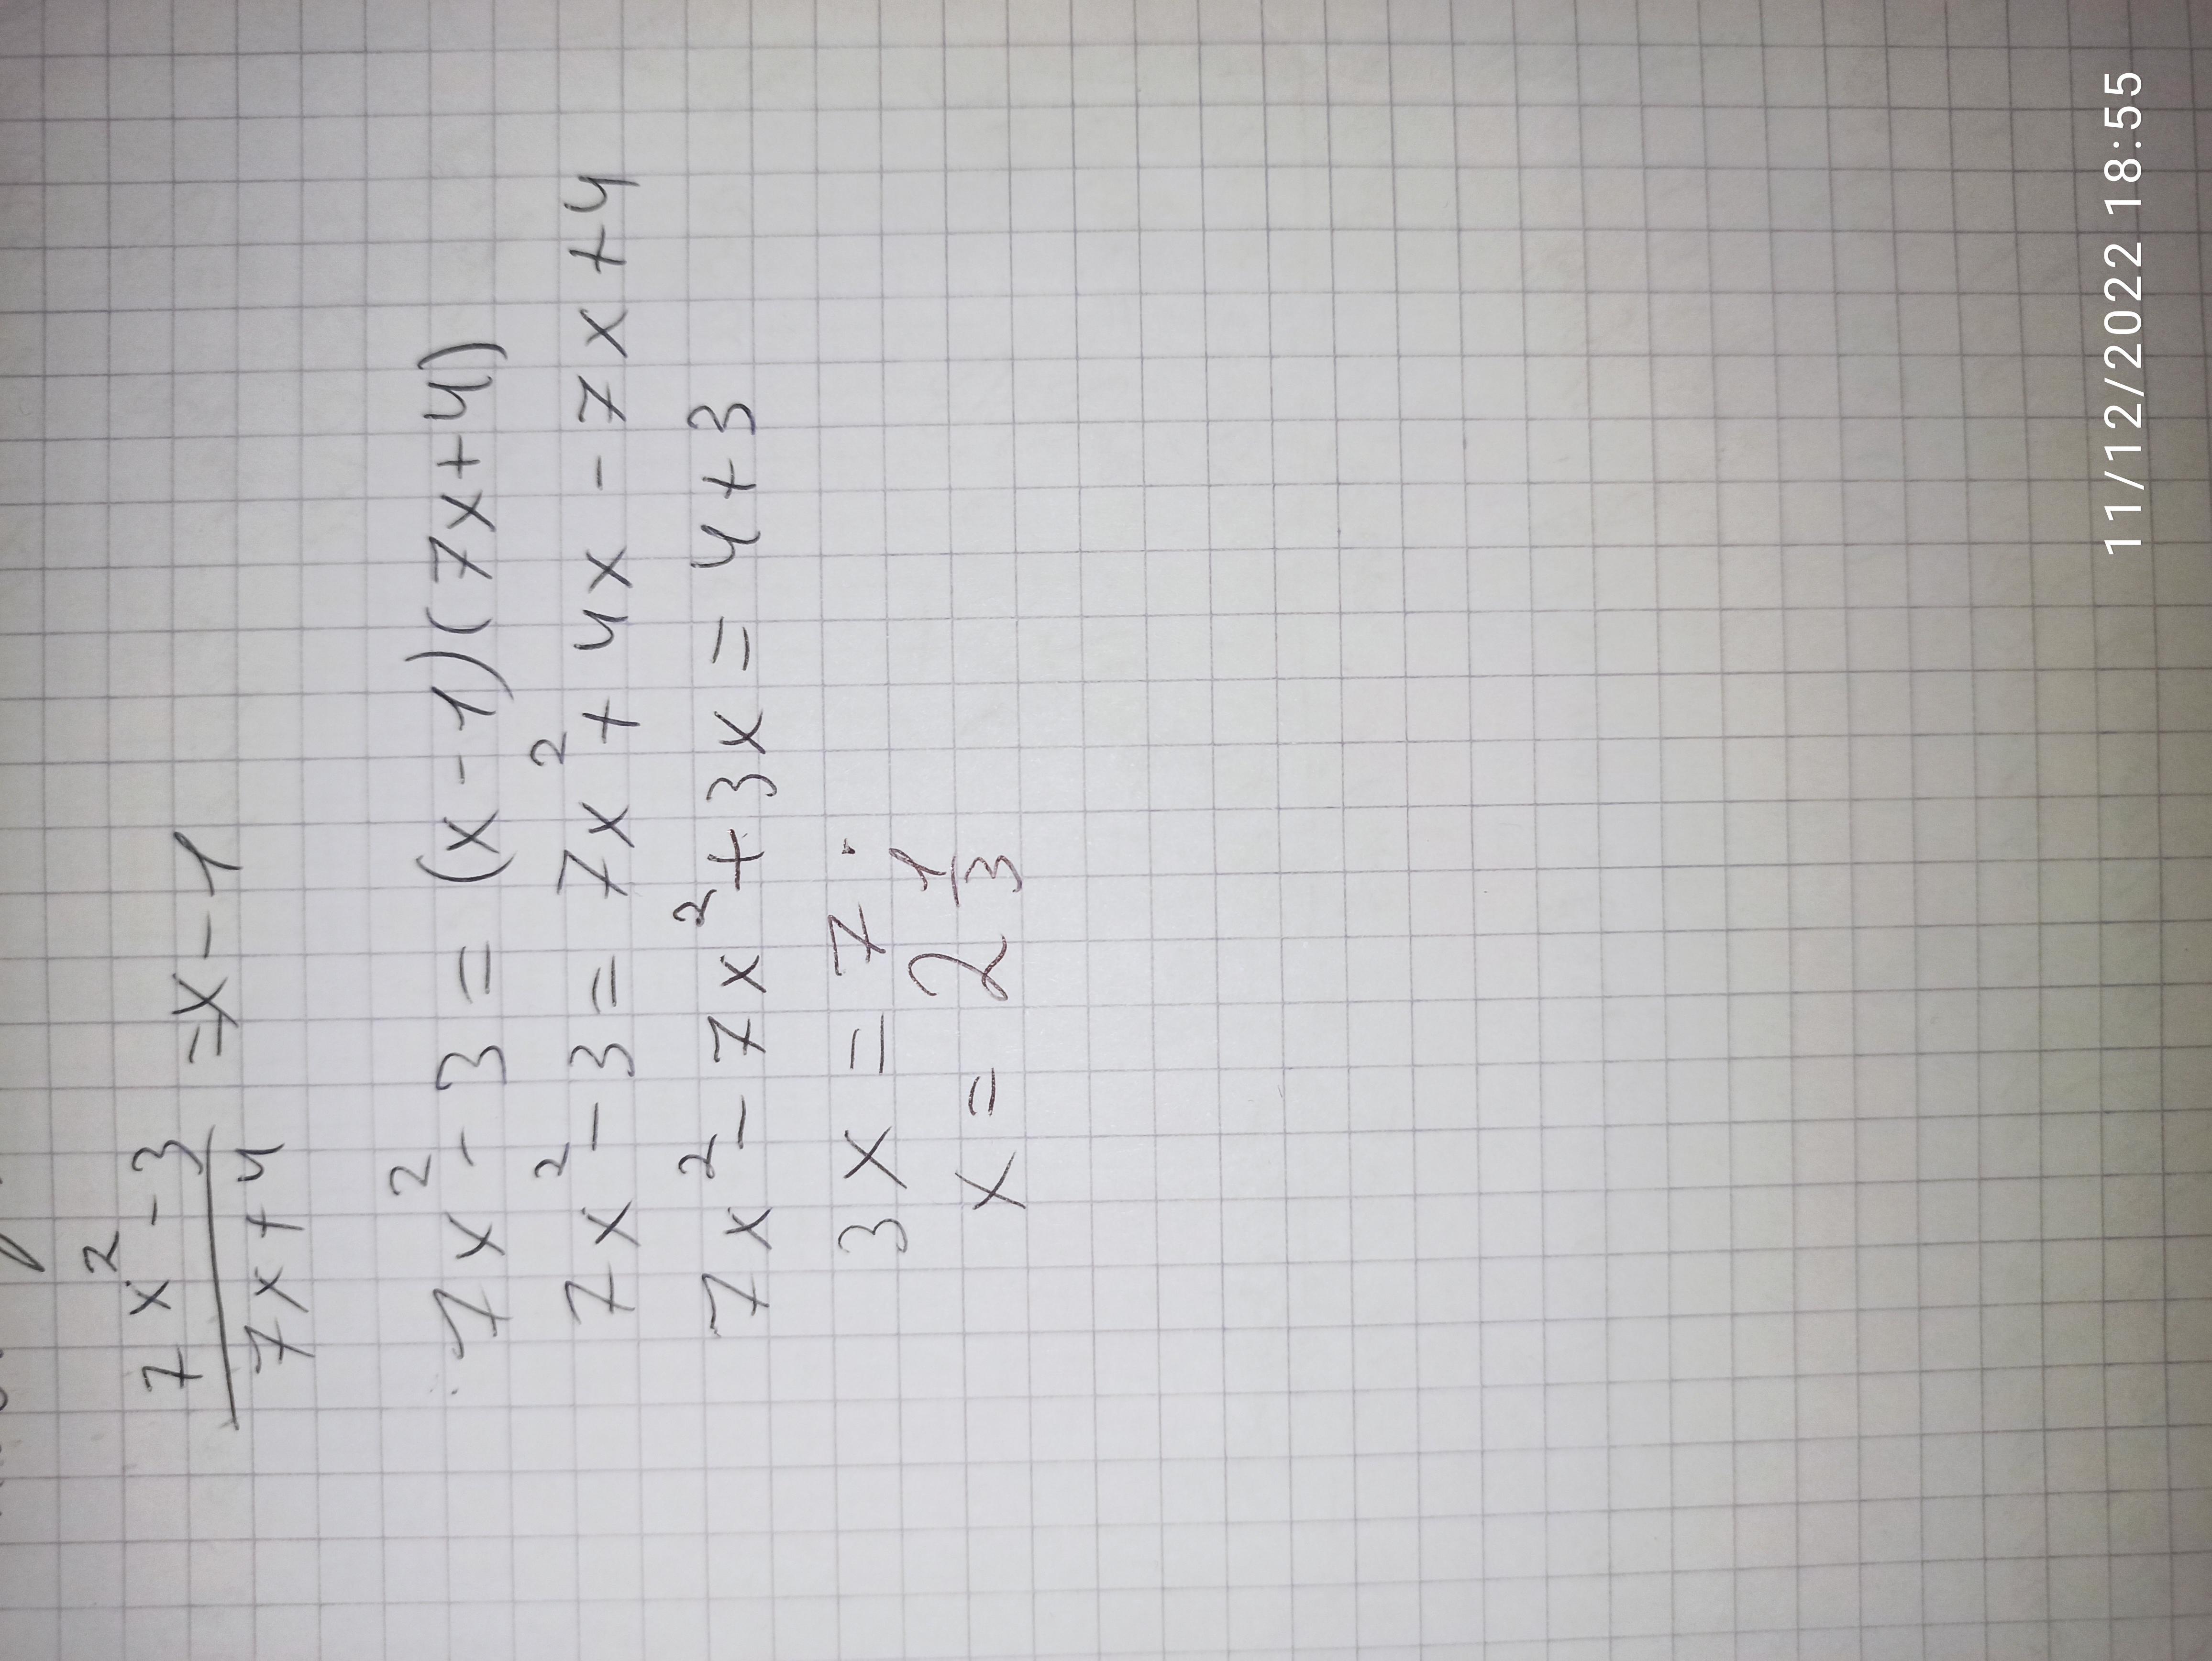 7x² - 3
7x + 4
= x - 1
7x² - 3 = (x - 1)(7x + 4)
7x² - 3 = 7x² + 4x - 7x + 4
7x² - 7x² + 3x = 4 + 3
3x = 7
x = 2 1/3
11/12/2022 18:55